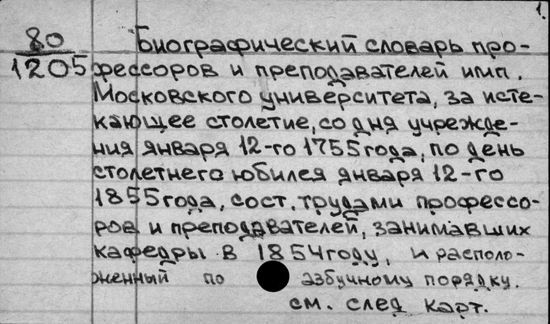 1.
80
1205
Биографический словарь про-
фессоров и преподавателей имп.
Московского университета, за исте-
кающее столетие, со дня учрежде-
ния января 12-го 1755 года, по день
столетнего юбилея января 12-го
1855 года, сост. трудами профессо-
ров и преподавателей, занимавших
кафедры в 1854 году, и располо-
женный по азбучному порядку.
см. след карт.